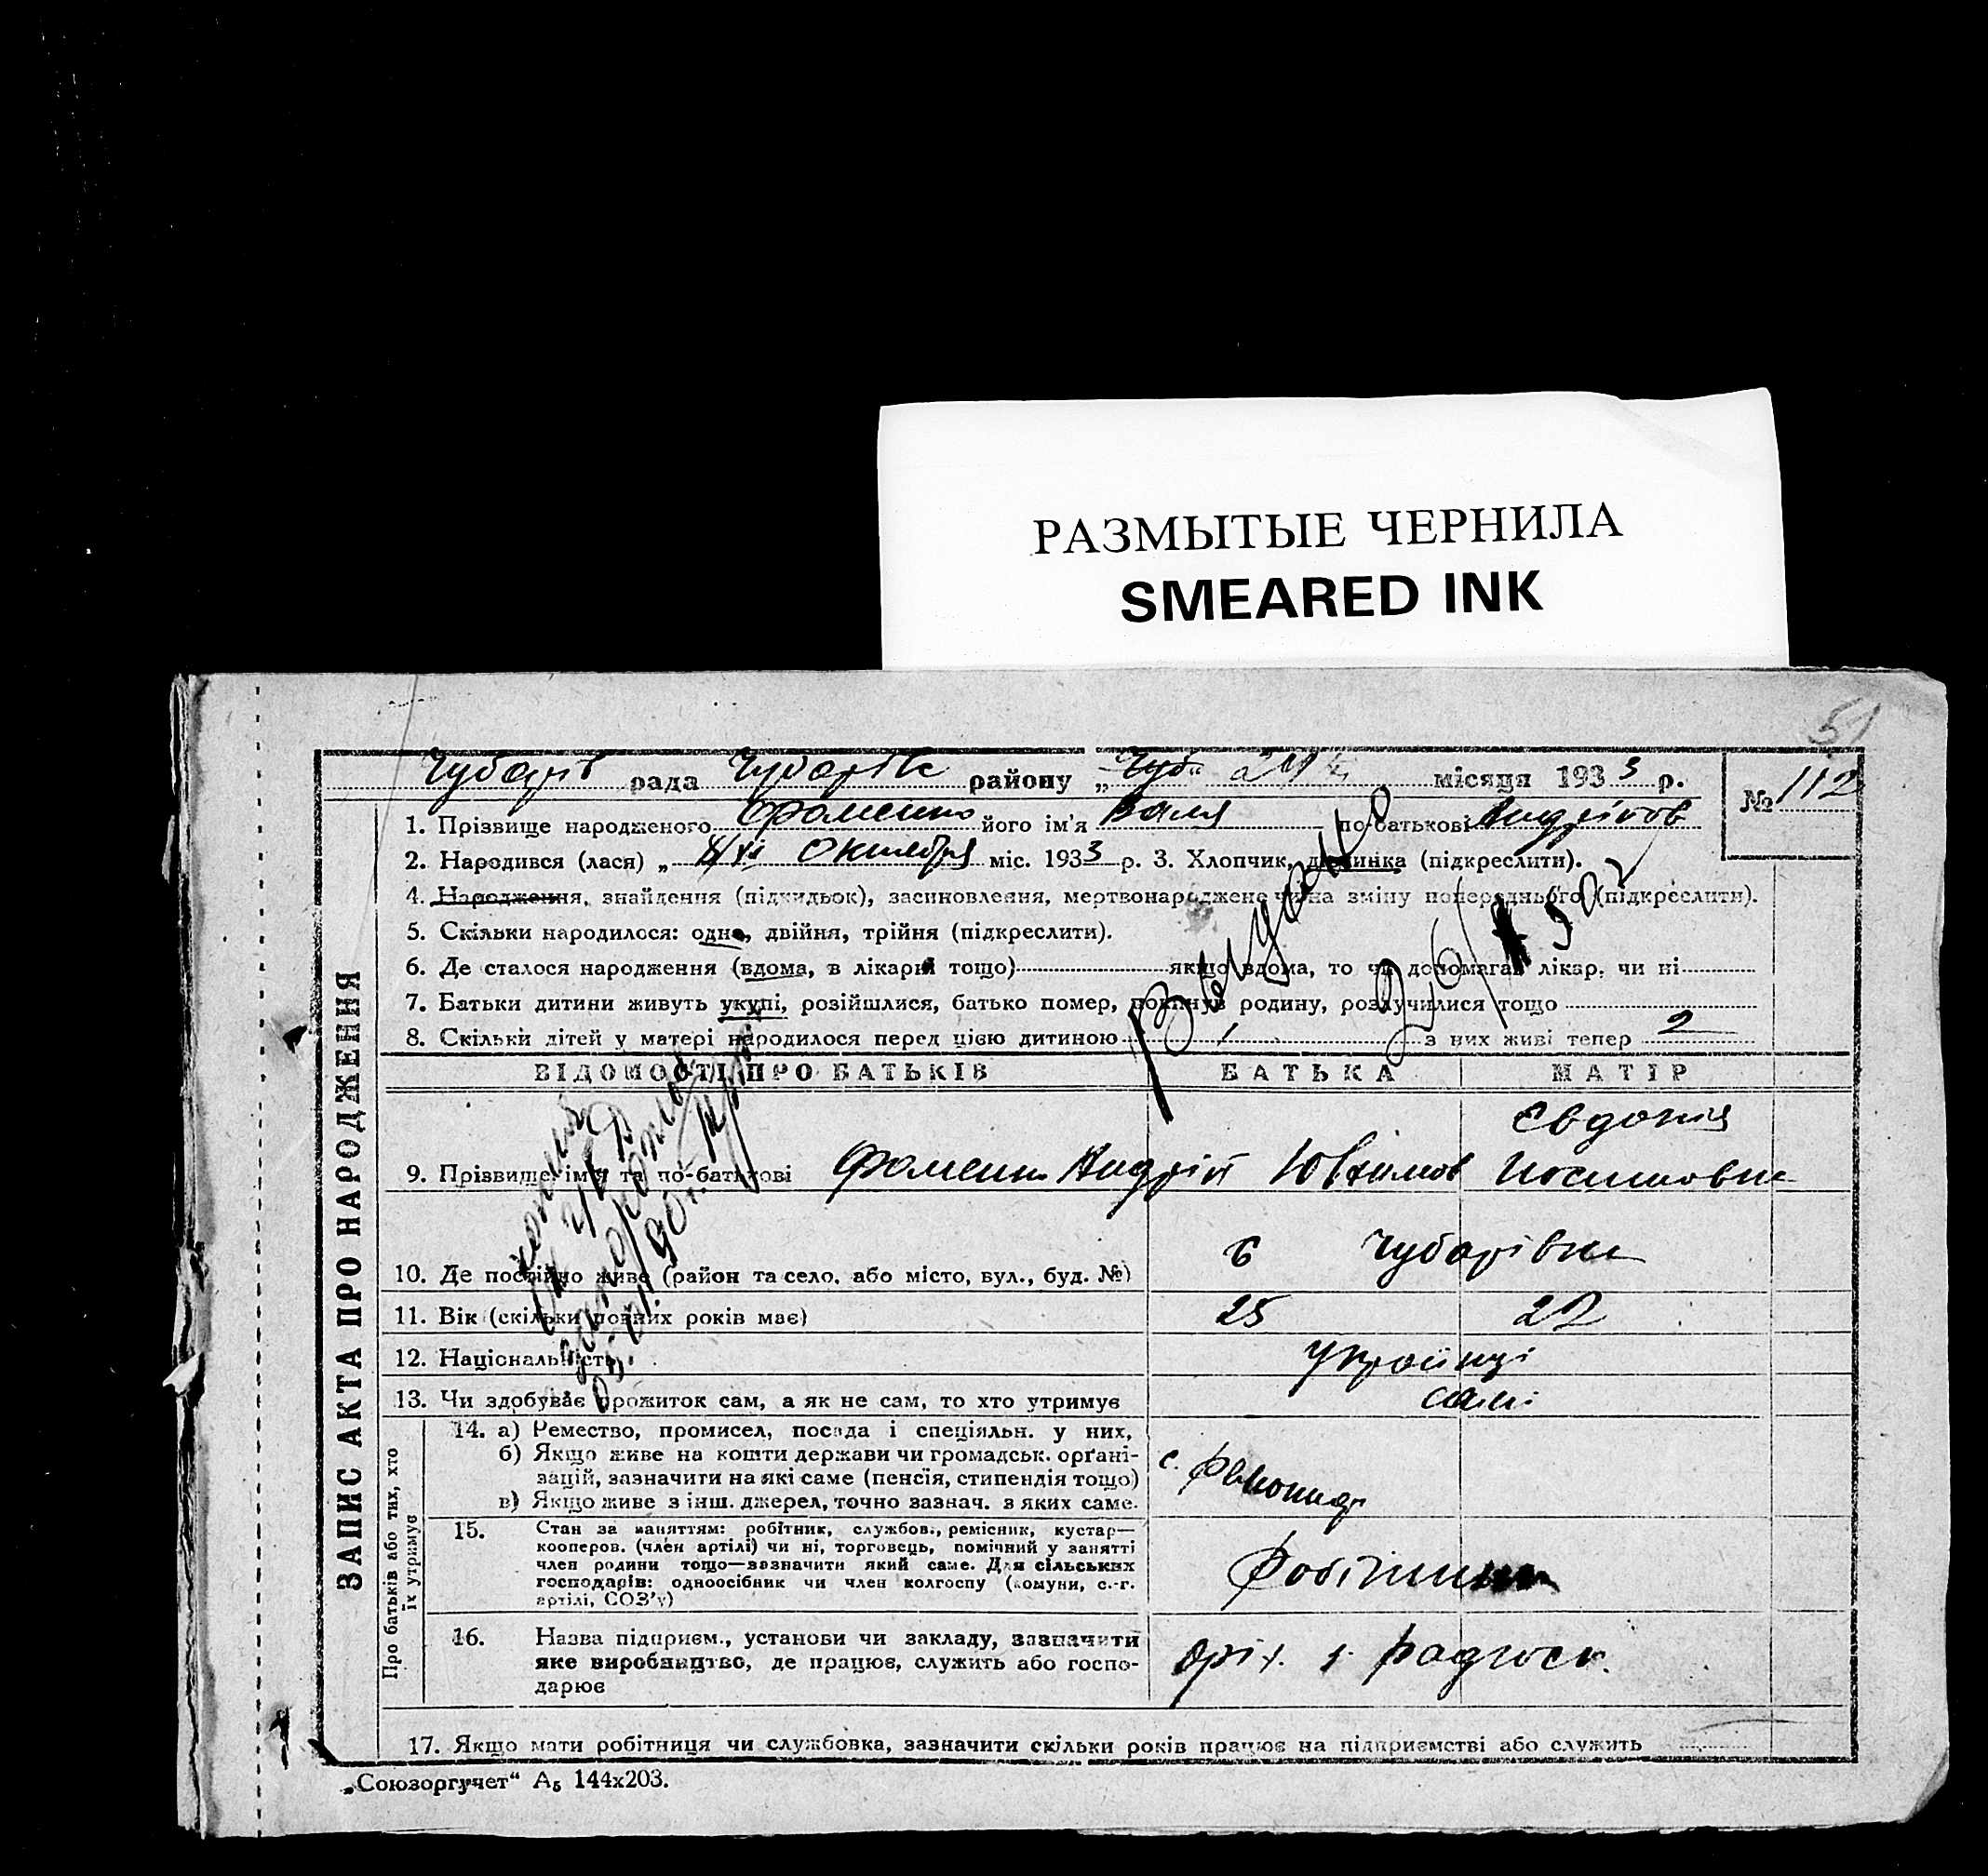 РАЗМЫТЫЕ ЧЕРНИЛА
SMEARED INK
51
Чубарів рада Чубарівс району „ Чуб “ місяця 193 3 р.
№ 112
1. Прізвище народженого Фоменко його ім'я Валя по-батькові Андріїов
2. Народився (лася) „ октября міс. 193 3 р. 3. Хлопчик, дівчинка (підкреслити).
4. Народження, знайдення (підкидьок), засиновлення, мертвонароджене чи на зміну попереднього (підкреслити).
5. Скільки народилося: одне, двійня, трійня (підкреслити).
6. Де сталося народження (вдома, в лікарні тощо) якщо вдома, то чи допомагав лікар, чи ні
7. Батьки дитини живуть укупі, розійшлися, батько помер, покинув родину, розлучилися тощо
8. Скільки дітей у матері народилося перед цією дитиною 1 з них живі тепер 2
Видано
ВІДОМОСТІ ПРО БАТЬКІВ БАТЬКА МАТІР
9. Прізвище, ім'я та по-батькові Фоменко Андрій Ювхимов Євдокія Йосиповна
10. Де постійно живе (район та село, або місто, вул., буд. №) с Чубарівка
11. Вік (скільки повних років має) 25 22
12. Національність Українці
13. Чи здобуває прожиток сам, а як не сам, то хто утримує самі
14. а) Ремество, промисел, посада і спеціяльн. у них,
б) Якщо живе на кошти держави чи громадськ. орґані-
зацій, зазначити на які саме (пенсія, стипендія тощо)
в) Якщо живе з інш. джерел, точно зазнач. з яких саме.
15. Стан за заняттям: робітник, службов., ремісник, кустар—
кооперов. (член артілі) чи ні, торговець, помічний у занятті
член родини тощо—зазначити який саме. Для сільських
господарів: одноосібник чи член колгоспу (комуни, с.-г.
артілі, СОЗ'у)
16. Назва підприєм., установи чи закладу, зазначити
яке виробництво, де працює, служить або госпо-
дарює
17. Якщо мати робітниця чи службовка, зазначити скільки років працює на підприємстві або служить
ЗАПИС АКТА ПРО НАРОДЖЕННЯ
Про батьків або тих, хто
їх утримує
„Союзоргучет“ А5 144х203.